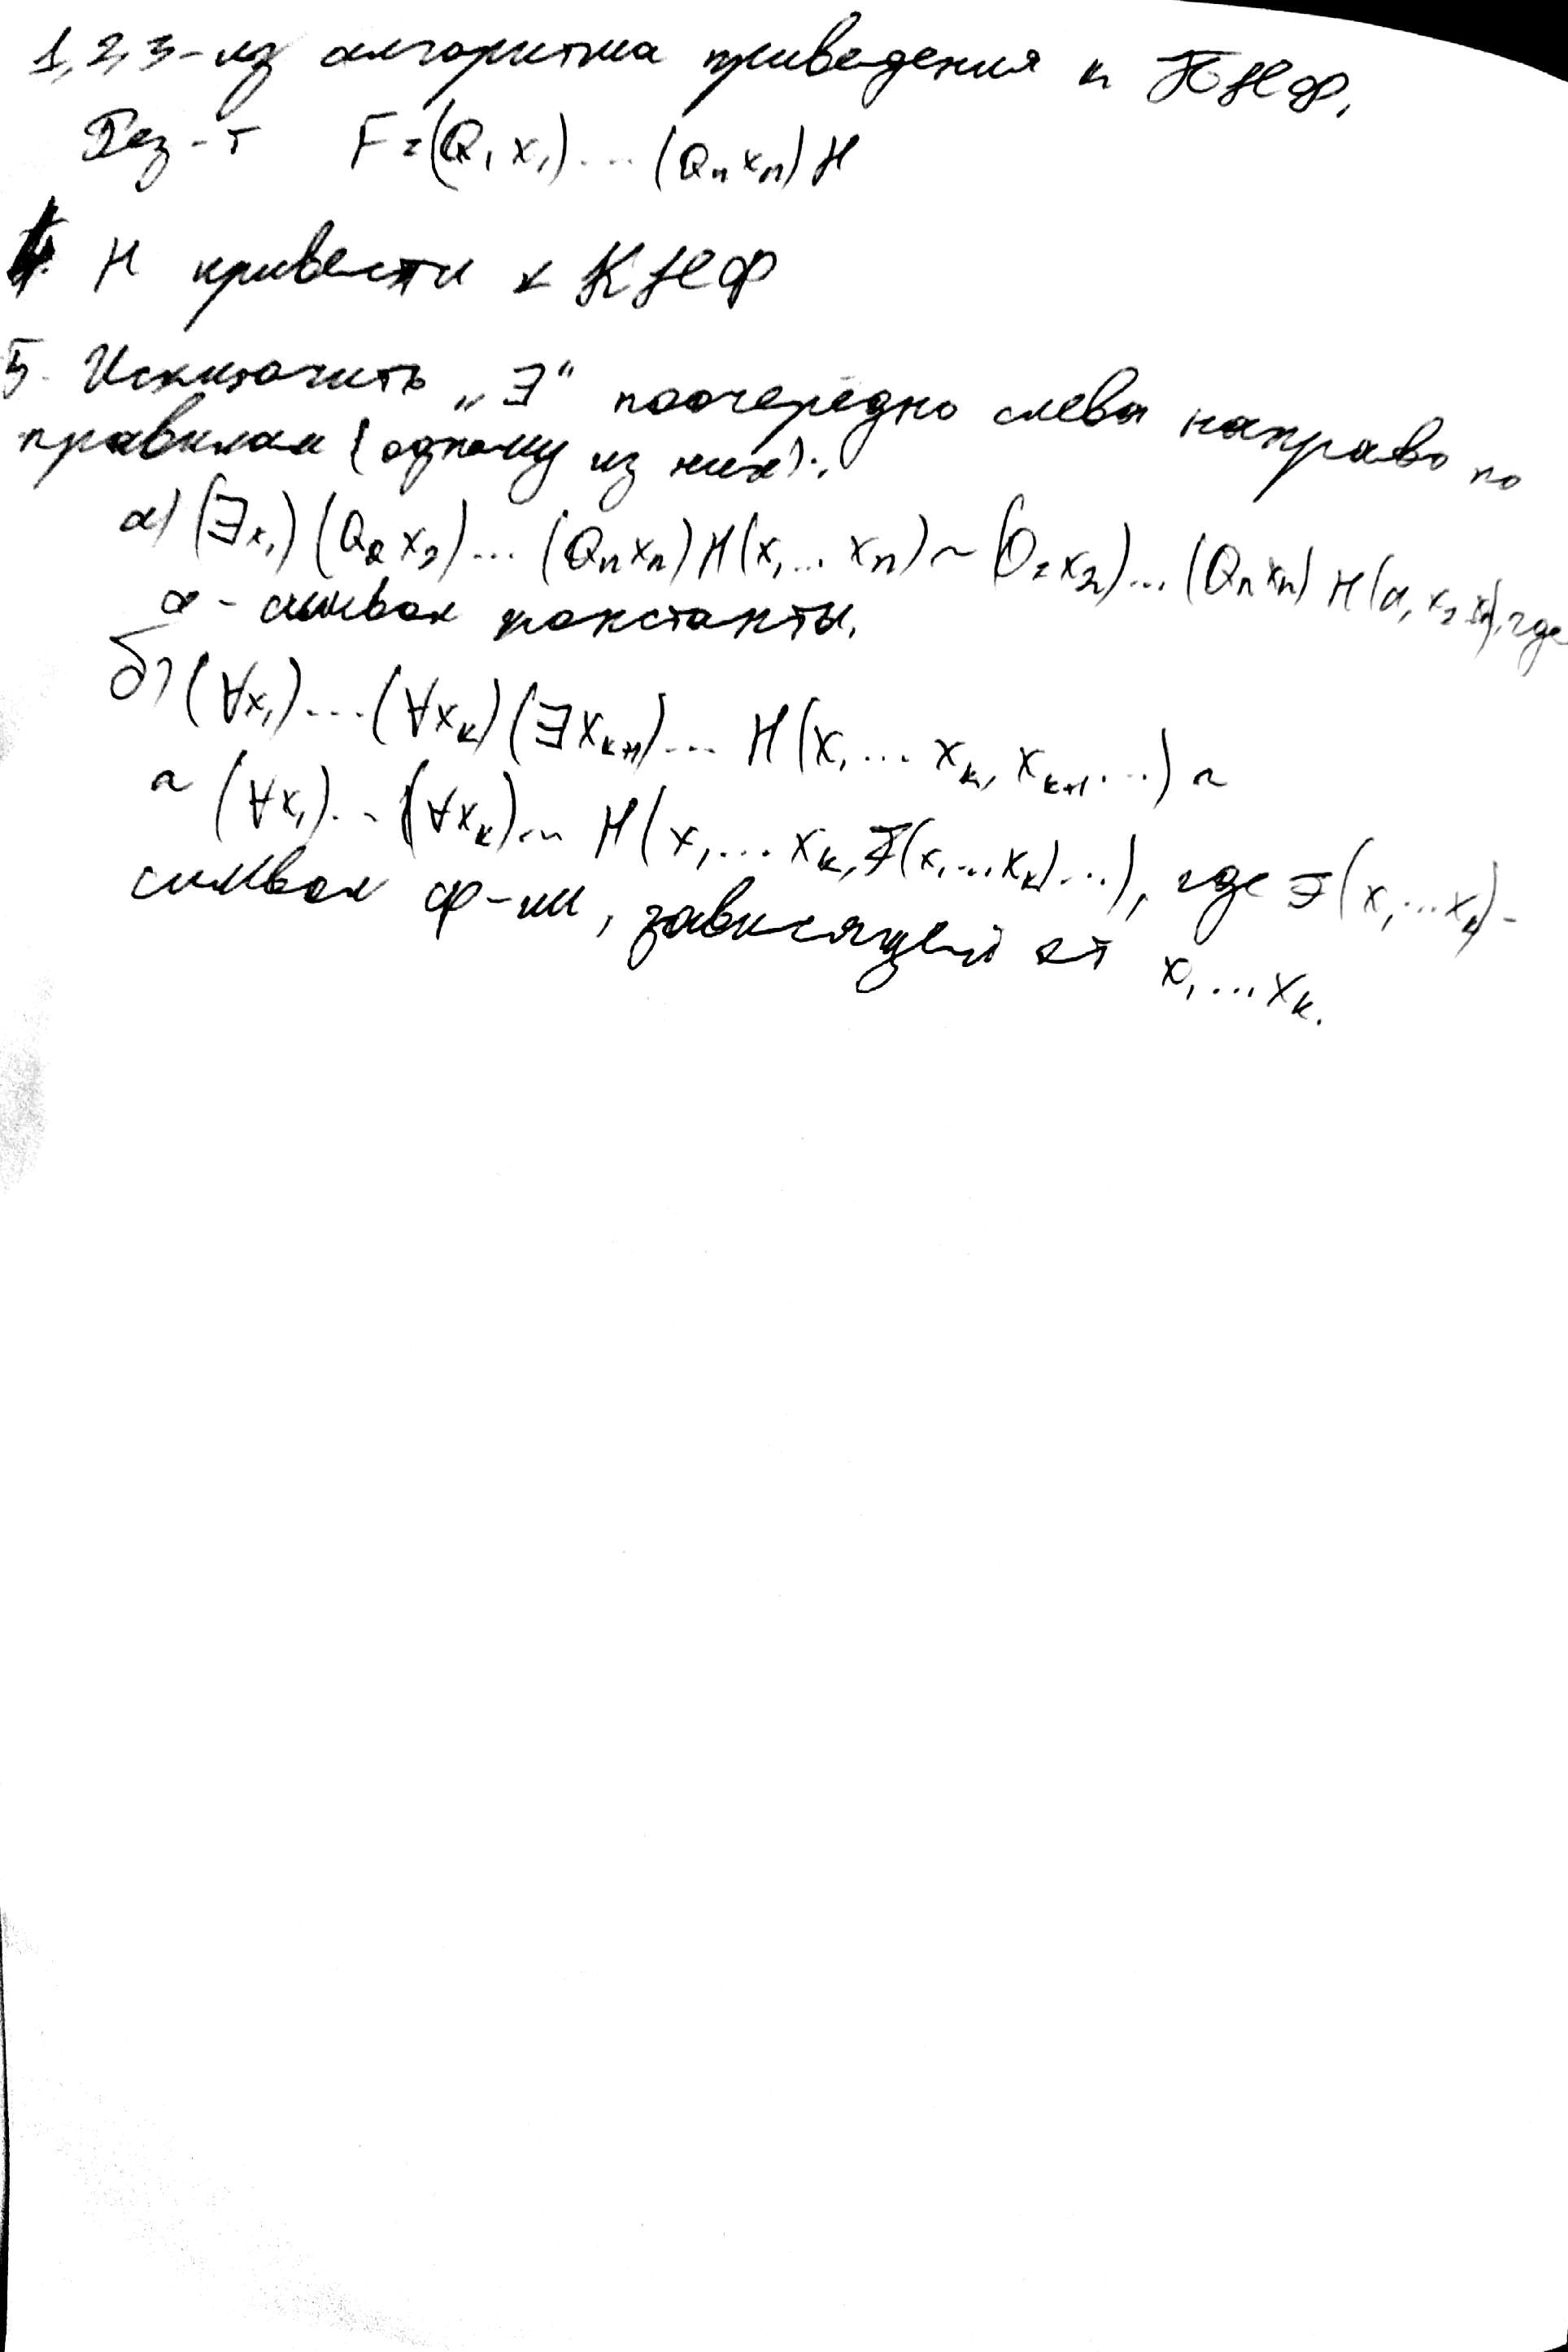 1, 2, 3 - из алгоритма приведения к ПНФ.
Рез-т F = (Q₁x₁)...(Qₙxₙ)H
4. H привести к КНФ
5. Исключить „∃“ поочерёдно слева направо по
правилам (одному из них):
а) (∃x₁)(Q₂x₂)...(Qₙxₙ)H(x₁...xₙ) ~ (Q₂x₂)...(Qₙxₙ)H(a, x₂ xₙ), где
a - символ константы.
б) (∀x₁)...(∀xₖ)(∃xₖ₊₁)... H(x₁...xₖ, xₖ₊₁...) ~
~ (∀x₁)...(∀xₖ)... H(x₁...xₖ, F(x₁...xₖ)...), где F(x₁...xₖ) -
символ ф-ии, зависящей от x₁...xₖ.